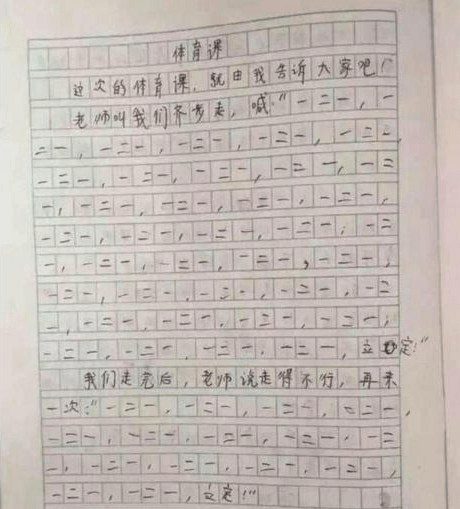 体育课
这次的体育课，就由我告诉大家吧！
老师叫我们齐步走，喊："一二一，一
二一，一二一，一二一，一二一，一二二，
一二一，一二一，一二一，一二一，一二
一，一二一，一二一，一二一，一二一，
一二一，一二一，一二一，一二一；一二
一，一二一，一二一，一二一，一二一，
一二一，一二一，一二一，一二一，一二
一，一二一，一二一，一二一，一二一；
一二一，一二一，一二一，一二一，立定！"
我们走完后，老师说走得不行，再来
一次："一二一，一二一，一二一，一二一，
一二一，一二一，一二一，一二一，一二
一，一二一，一二一，一二一，一二一，
一二一，一二一，立定！"